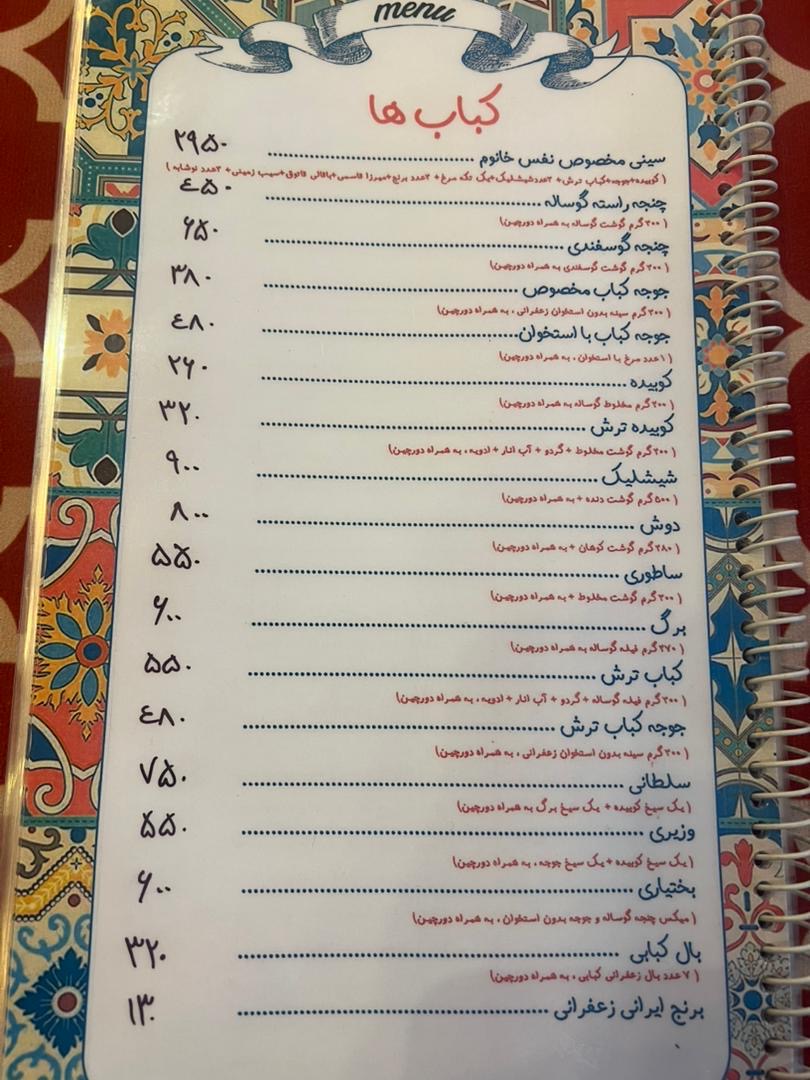 menu
کباب ها
سینی مخصوص نفس خانوم ........ ۲۹۵۰
( کوبیده+جوجه+کباب ترش+ ۲عددشیشلیک+یک تکه مرغ+ ۲عدد برنج+میرزا قاسمی+باقالی قاتوق+سیب زمینی+ ۲عدد نوشابه )
چنجه راسته گوساله ........ ٤۵۰
( ۲۰۰گرم گوشت گوساله به همراه دورچین)
چنجه گوسفندی ........ ۶۵۰
( ۲۰۰گرم گوشت گوسفندی به همراه دورچین)
جوجه کباب مخصوص ........ ۳۸۰
( ۲۰۰گرم سینه بدون استخوان زعفرانی ، به همراه دورچین)
جوجه کباب با استخوان ........ ٤۸۰
( ۱عدد مرغ با استخوان ، به همراه دورچین)
کوبیده ........ ۲۶۰
( ۲۰۰گرم مخلوط گوساله به همراه دورچین)
کوبیده ترش ........ ۳۲۰
( ۲۰۰گرم گوشت مخلوط + گردو + آب انار + ادویه ، به همراه دورچین)
شیشلیک ........ ۹۰۰
( ۵۰۰گرم گوشت دنده + به همراه دورچین)
دوش ........ ۸۰۰
( ۲۸۰گرم گوشت کوهان + به همراه دورچین)
ساطوری ........ ۵۵۰
( ۲۰۰گرم گوشت مخلوط + به همراه دورچین)
برگ ........ ۶۰۰
( ۲۷۰گرم فیله گوساله به همراه دورچین)
کباب ترش ........ ۵۵۰
( ۲۰۰گرم فیله گوساله + گردو + آب انار + ادویه ، به همراه دورچین)
جوجه کباب ترش ........ ٤۸۰
( ۲۰۰گرم سینه بدون استخوان زعفرانی ، به همراه دورچین)
سلطانی ........ ۷۵۰
( یک سیخ کوبیده + یک سیخ برگ به همراه دورچین)
وزیری ........ ۵۵۰
( یک سیخ کوبیده + یک سیخ جوجه ، به همراه دورچین)
بختیاری ........ ۶۰۰
( میکس چنجه گوساله و جوجه بدون استخوان ، به همراه دورچین)
بال کبابی ........ ۳۲۰
( ۷عدد بال زعفرانی کبابی ، به همراه دورچین)
برنج ایرانی زعفرانی ........ ۱۳۰